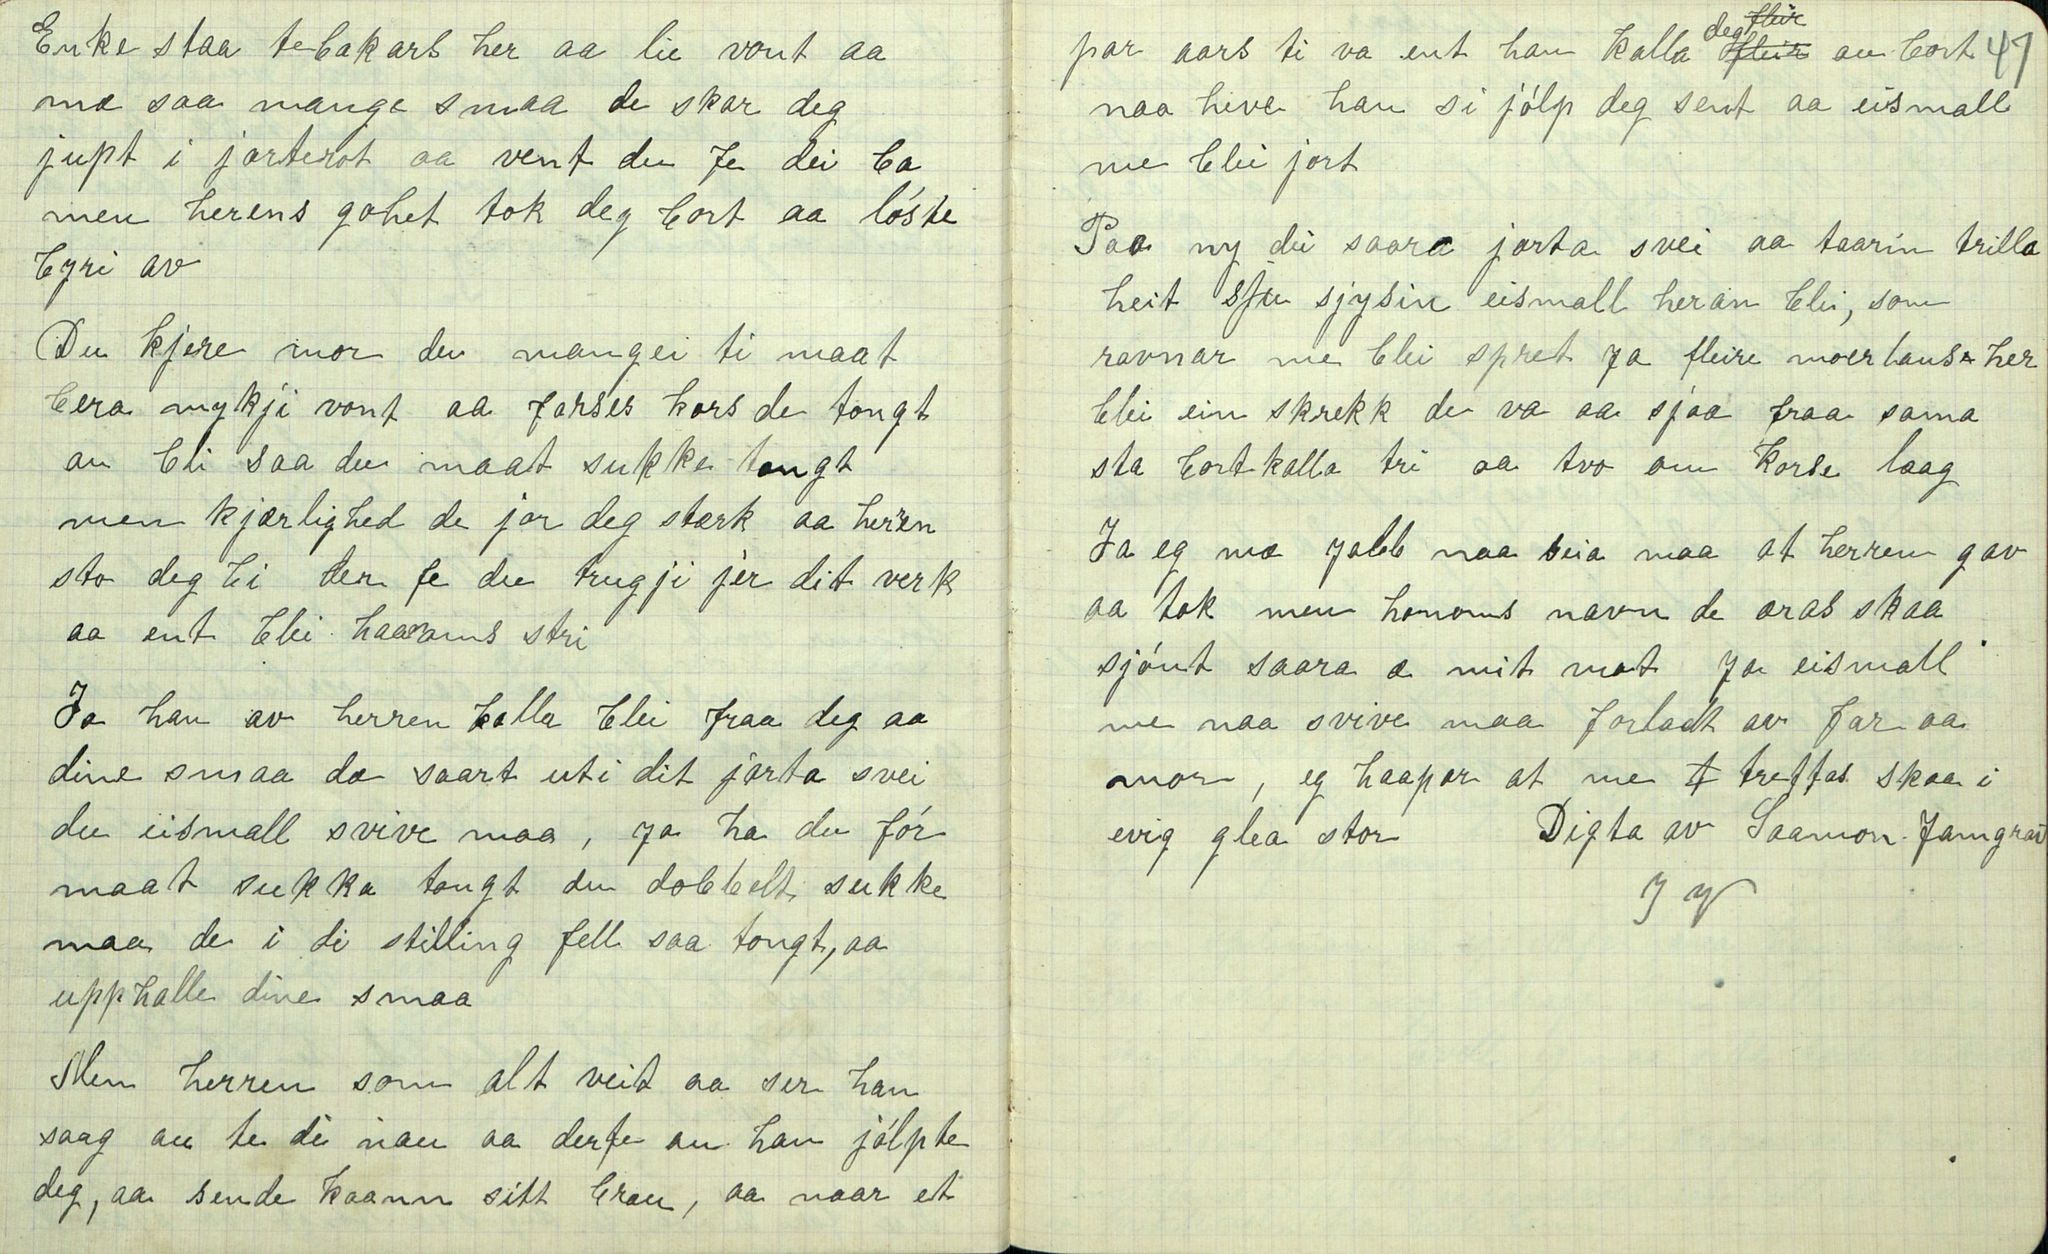 Enke staa tebakars her aa lie vont aa
mæ saa mange smaa de skar deg
jupt i jarterot aa vent du fe dei ba
men herens gohet tok deg bort aa löste
byri av
Du kjere mor du mangei ti maat
bera mykji vont aa farses kors de tongt
au bli saa du maat sukke tongt
men kjærlighed de jor deg stærk aa herren
sto deg bi der fe du trugji jer dit verk
aa ent blei haarams stri
Ja han av herren kalla blei fraa deg aa
dine smaa dæ saart uti dit jarta svei
du eismall svive maa, ja ha du för
maat sukka tongt du dobbelt sukke
maa de i di stilling fell saa tongt, aa
upphalle dine smaa
Men herren som alt veit aa ser han
saag au te di nau aa derfe au han jölpte
deg, aa sende kaann sitt brau, aa naar et
par aars ti va ent han kalla deg au bort 47
naa heve han si jölp deg sent aa eismall
me blei jort
Paa ny dei saara jarta svei aa taarin trilla
heit sju sjysin eismall heran blei, som
ravnar me blei spret ja fleire moerlause her
blei ein skrekk de va aa sjaa fraa sama
sta bortkalla tri aa tvo om korse laag
Ja eg mæ Jabb naa seia maa at herren gav
aa tok men honoms navn de æras skaa
sjönt saara æ mit mot ja eismall
me naa svive maa forladt av far aa
mor, eg haapar at me treffas skaa i
evig glea stor Digta av Saamon Jamgrav